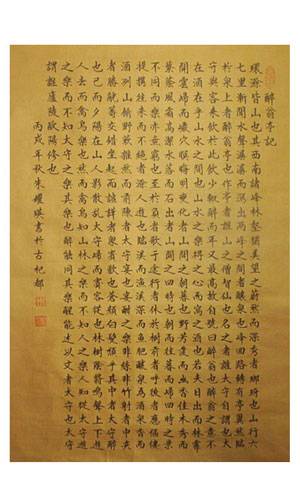 醉翁亭記
環滁皆山也其西南諸峰林壑尤美望之蔚然而深秀者瑯琊也山行六
七里漸聞水聲潺潺而瀉出兩峰之間者釀泉也峰回路轉有亭翼然臨
於泉上者醉翁亭也作亭者誰山之僧智仙也名之者誰太守自謂也太
守與客來飲於此飲少輒醉而年又最高故自號曰醉翁也醉翁之意不
在酒在乎山水之間也山水之樂得之心而寓之酒也若夫日出而林霏
開雲歸而巖穴暝晦明變化者山間之朝暮也野芳發而幽香佳木秀而
繁蔭風霜高潔水落而石出者山間之四時也朝而往暮而歸四時之景
不同而樂亦無窮也至於負者歌于途行者休於樹前者呼後者應傴僂
提攜往來而不絕者滁人遊也臨溪而漁溪深而魚肥釀泉為酒泉香而
酒洌山餚野蔌雜然而前陳者太守宴也宴酣之樂非絲非竹射者中弈
者勝觥籌交錯起坐而喧嘩者眾賓歡也蒼顏白髮頹乎其中者太守醉
也已而夕陽在山人影散亂太守歸而賓客從也樹林陰翳鳴聲上下遊
人去而禽鳥樂也然而禽鳥知山林之樂而不知人之樂人知從太守遊
之樂而不知太守之樂其樂也醉能同其樂醒能述以文者太守也太守
謂誰廬陵歐陽修也
丙戌年秋朱耀瑛書於古杞鄉